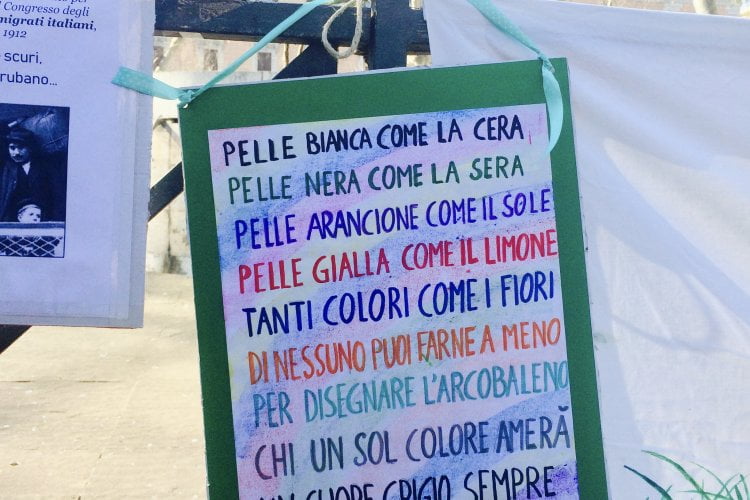 per
Congresso degli
migrati italiani,
1912
scuri,
rubano...
PELLE BIANCA COME LA CERA
PELLE NERA COME LA SERA
PELLE ARANCIONE COME IL SOLE
PELLE GIALLA COME IL LIMONE
TANTI COLORI COME I FIORI
DI NESSUNO PUOI FARNE A MENO
PER DISEGNARE L'ARCOBALENO
CHI UN SOL COLORE AMERÃ
UN CUORE GRIGIO SEMPRE